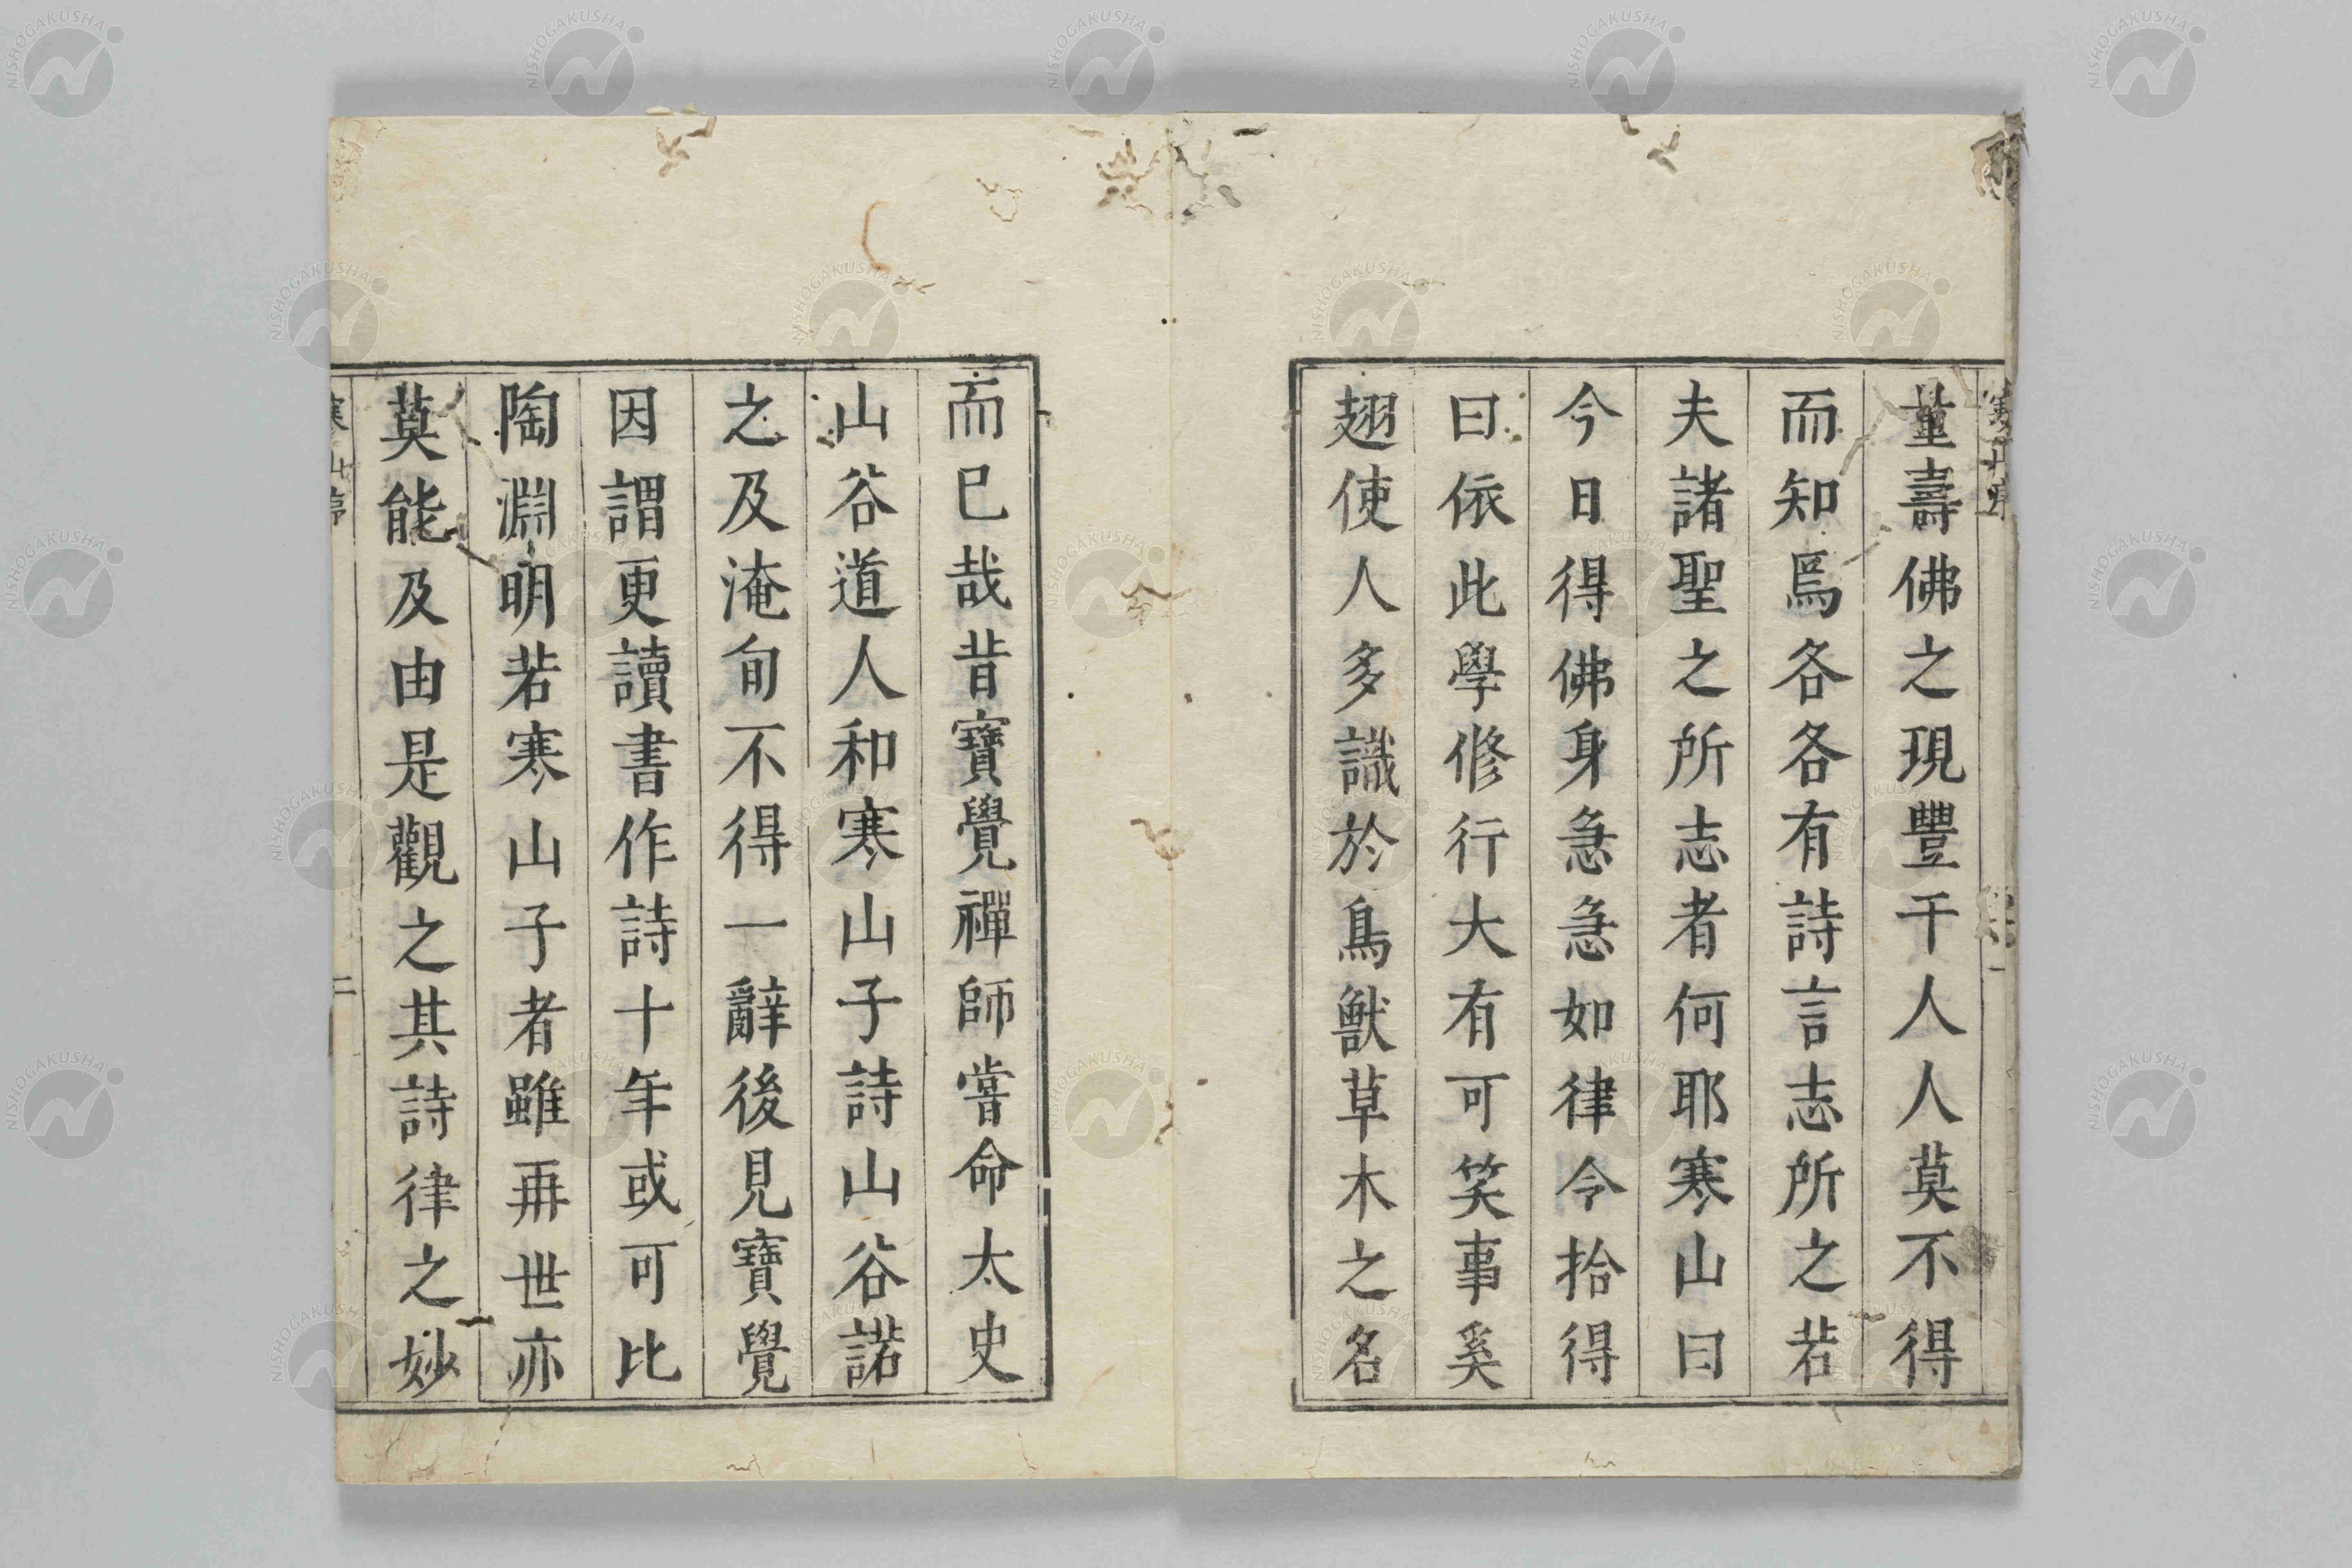 量壽佛之現豐干人人莫不得
而知焉各各有詩言志所之若
夫諸聖之所志者何耶寒山曰
今日得佛身急急如律令拾得
曰依此學修行大有可笑事奚
翅使人多識於鳥獸草木之名
而已哉昔寶覺禪師嘗命太史
山谷道人和寒山子詩山谷諾
之及淹旬不得一辭後見寶覺
因謂更讀書作詩十年或可比
陶淵明若寒山子者雖再世亦
莫能及由是觀之其詩律之妙
寒山序
二
NISHOGAKUSHA